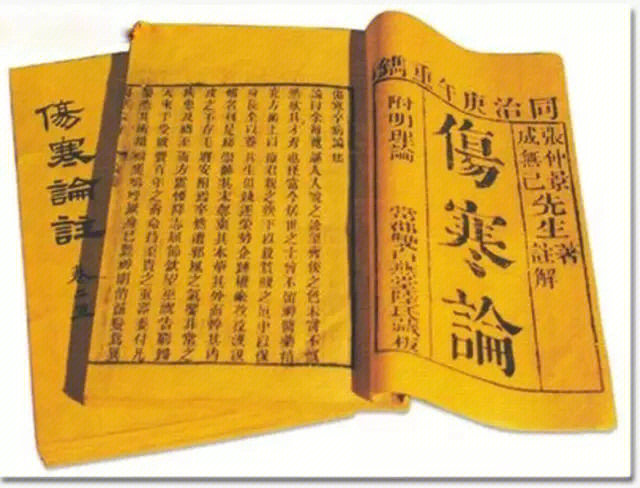 同治庚午重鐫
張仲景
成無己
先生
著
註解
傷寒論
附明理論
常郡雙白燕堂陸氏藏板
傷寒卒病論集
論曰余每覽越人入虢之診望齊侯之色未嘗不慨
然歎其才秀也怪當今居世之士曾不留神醫藥精
究方術上以療君親之疾下以救貧賤之厄中以保
身長全以養其生但競逐榮勢企踵權豪孜孜汲汲
惟名利是務崇飾其末忽棄其本華其外而悴其內
皮之不存毛將安附焉卒然遭邪風之氣嬰非常之
疾患及禍至而方震慄降志屈節欽望巫祝告窮歸
天束手受敗賫百年之壽命持至貴之重器委付凡
醫恣其所措咄嗟嗚呼厥身已斃神明消滅變為異
傷寒論註
卷